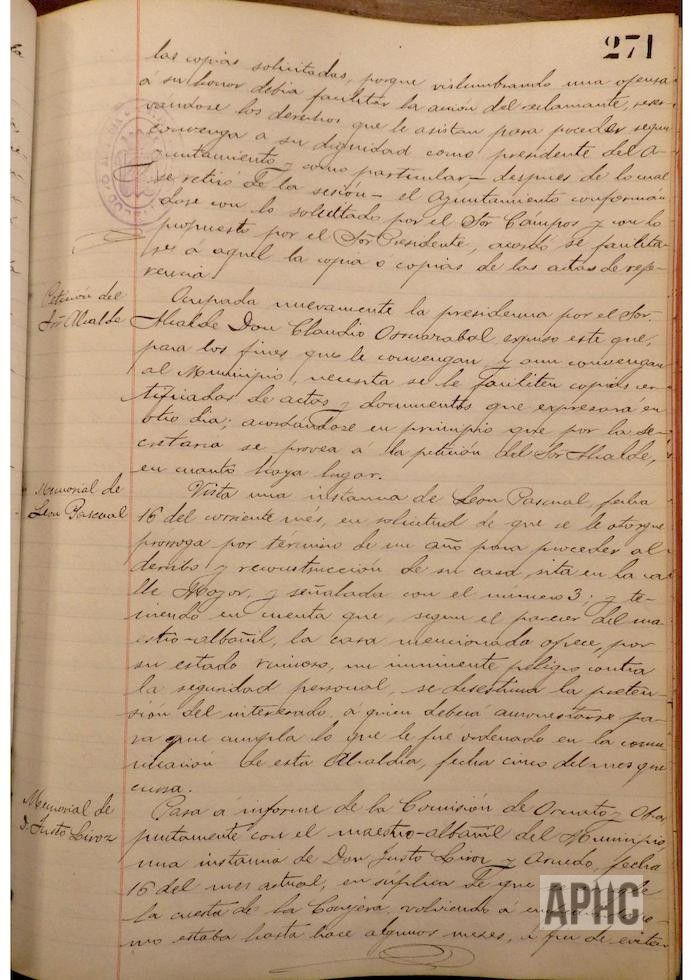 271
las copias solicitadas, porque vislumbrando una ofensa
á su honor debia facilitar la acción del reclamante, reser-
vandose los derechos que le asistan para poceder segun
convenga a su dignidad como presidente del A-
yuntamiento y como particular,- despues de lo cual
se retiró de la sesión- el Ayuntamiento conformán
dose con lo solicitado por el Sor Cámpos y con lo
propuesto por el Sor Presidente, acordó se facilita-
se á aquel la copia ó copias de las actas de refe-
rencia.
Petición del
Sor Alcalde
Ocupada nuevamente la presidencia por el Sor.
Alcalde Don Claudio expuso este que,
para los fines que le convengan, y aun convengan
al Municipio, necesita se le faciliten copias cer-
tificadas de actas y documentos que expresará en
otro dia; acordándose en principio que por la Se-
cretaria se provea á la petición del Sor Alcalde,
en cuanto haya lugar.
Memorial de
León Pascual
Vista una instancia de León Pascual, fecha
16 del corriente més, en solicitud de que se le otorgue
prorroga por término de un año para proceder al
derribo y reconstrucción de su casa, sita en la ca-
lle Mayor, y señalada con el número 3; y te-
niendo en cuenta que, segun el parecer del ma
estro-albañil, la casa mencionada ofrece, por
su estado ruinoso, un inminente peligro contra
la seguridad personal, se desestima la preten-
sión del interesado, á quien deberá amonestarse pa-
ra que cumpla lo que le fue ordenado en la comu-
nicación de esta Alcaldía, fecha cinco del mes que
cursa.
Memorial de
D. Justo Liroz
Pasa a informe de la Comisión de Ornato y Obras,
juntamente con el maestro-albañil del Municipio,
una instancia de Don Justo Liroz y Asnedo, fecha
16 del mes actual, en súplica de que
la cuesta de la Conejera, volviendo á co-
mo estaba hasta hace algunos meses, á fin de evitar
APHC